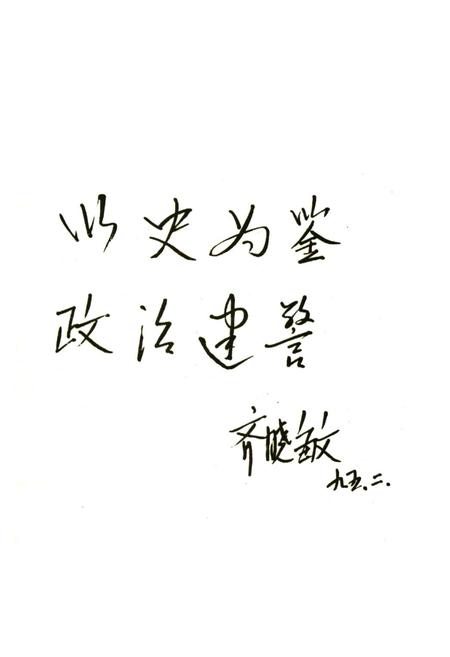 以史为鉴
政治建警
齐晓敏
九五.二.